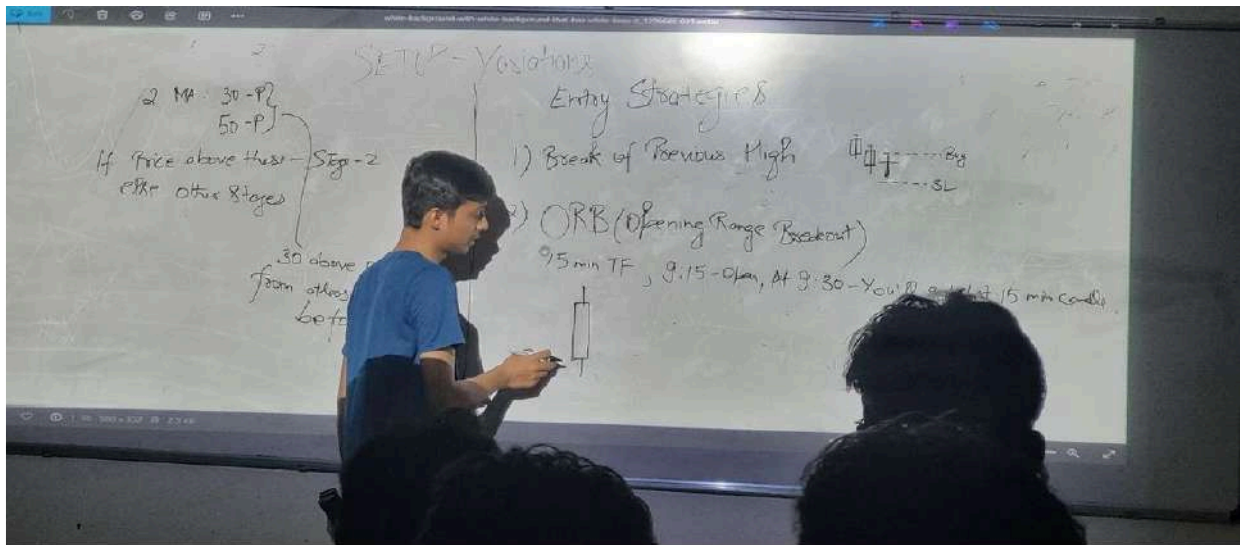 SETUP - Variations
2 MA: 30-P
50-P
If Price above these - Stage-2
else other Stages
30 above
from others
Entry Strategies
1) Break of Previous High
Buy
SL
2) ORB (Opening Range Breakout)
15 min TF, 9:15-Open, At 9:30-You'll 15 min Candle